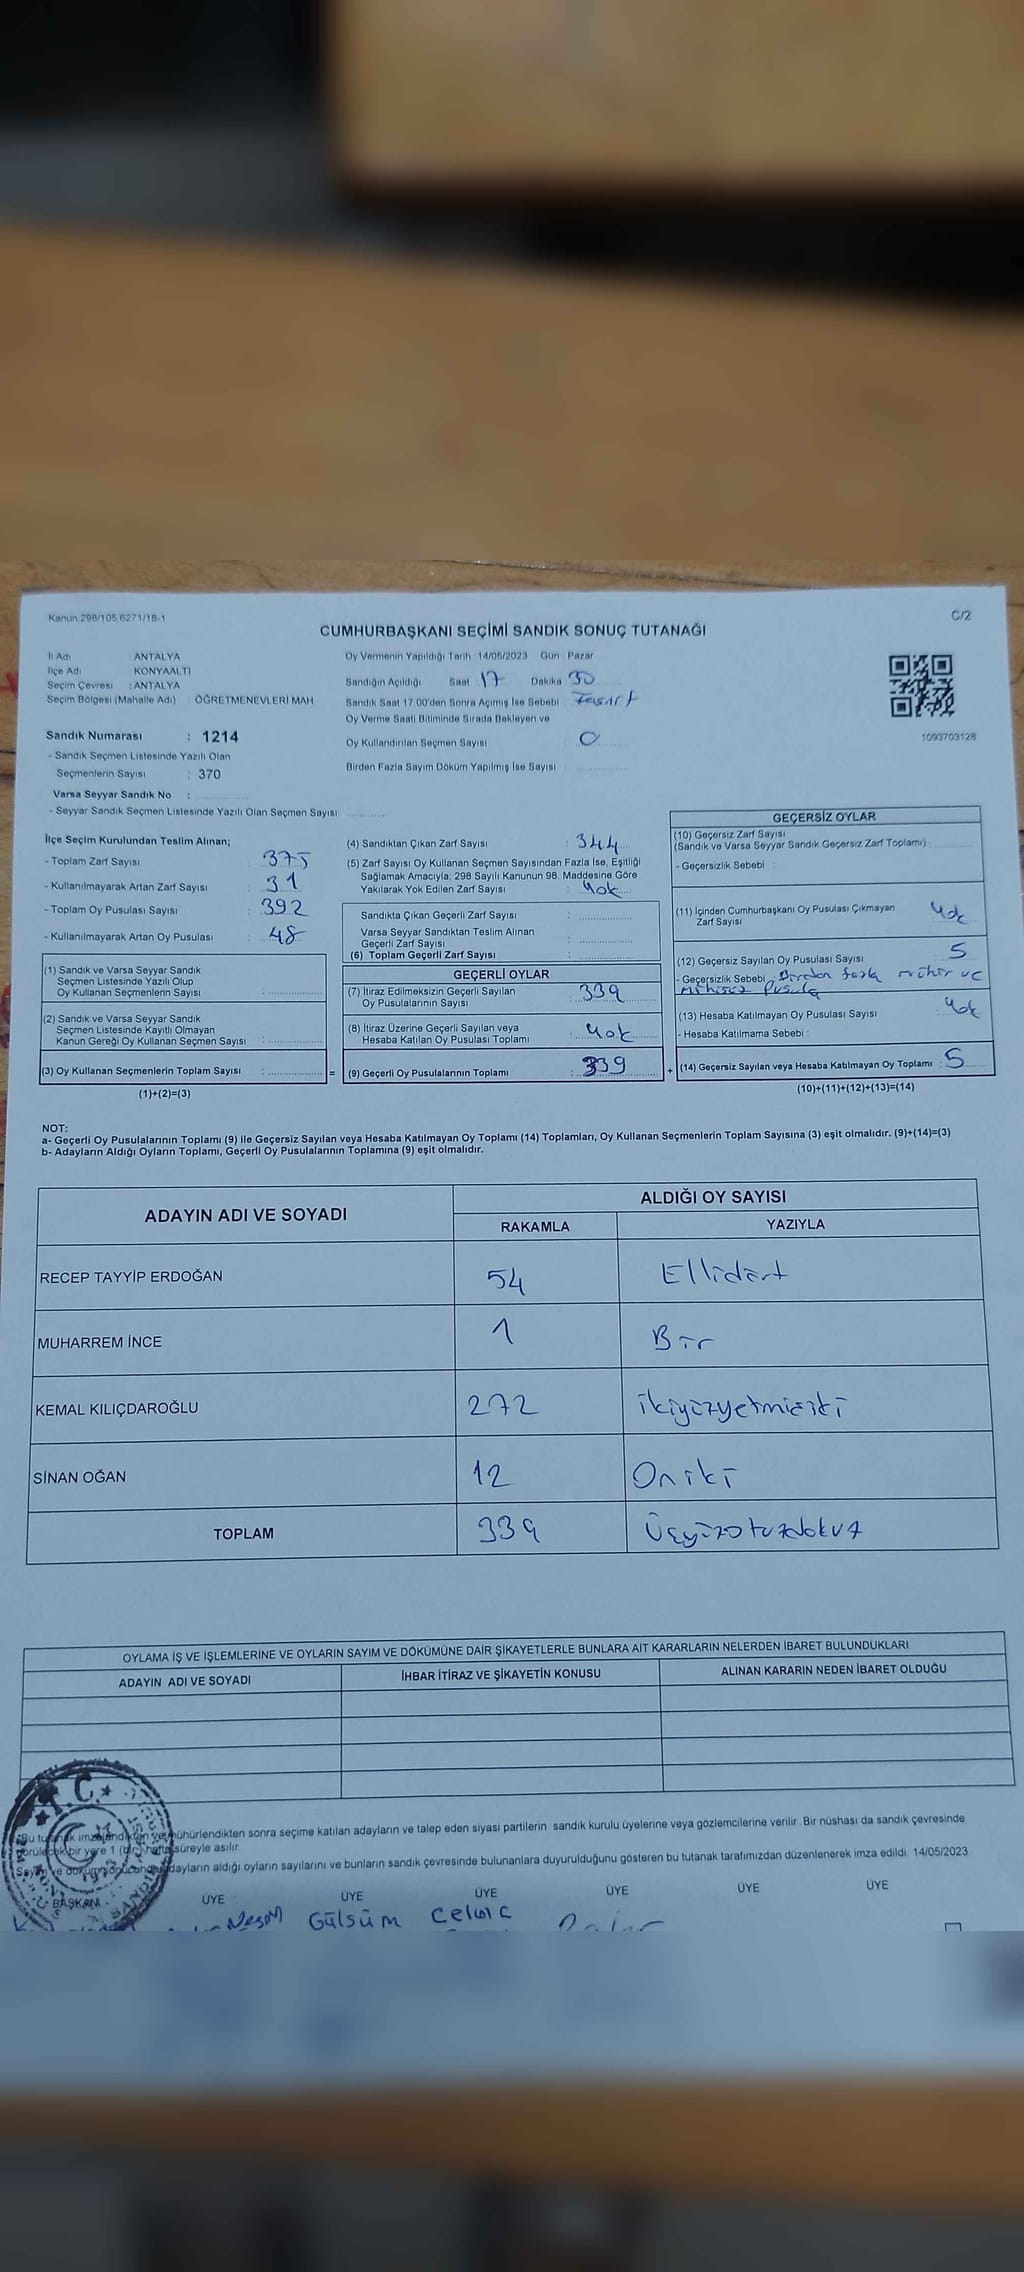 Kanun 298/105,6271/18-1
C/2
CUMHURBAŞKANI SEÇİMİ SANDIK SONUÇ TUTANAĞI
İl Adı : ANTALYA
İlçe Adı : KONYAALTI
Seçim Çevresi : ANTALYA
Seçim Bölgesi (Mahalle Adı) : ÖĞRETMENEVLERİ MAH
Sandık Numarası : 1214
- Sandık Seçmen Listesinde Yazılı Olan
Seçmenlerin Sayısı : 370
Varsa Seyyar Sandık No :
- Seyyar Sandık Seçmen Listesinde Yazılı Olan Seçmen Sayısı
Oy Vermenin Yapıldığı Tarih : 14/05/2023 Gün : Pazar
Sandığın Açıldığı Saat 17 Dakika 30
Sandık Saat 17.00'den Sonra Açımış İse Sebebi :
Oy Verme Saati Bitiminde Sırada Bekleyen ve
Oy Kullandırılan Seçmen Sayısı : 0
Birden Fazla Sayım Döküm Yapılmış İse Sayısı :
1093703128
İlçe Seçim Kurulundan Teslim Alınan;
- Toplam Zarf Sayısı : 375
- Kullanılmayarak Artan Zarf Sayısı : 31
- Toplam Oy Pusulası Sayısı : 392
- Kullanılmayarak Artan Oy Pusulası : 48
(1) Sandık ve Varsa Seyyar Sandık
Seçmen Listesinde Yazılı Olup
Oy Kullanan Seçmenlerin Sayısı :
(2) Sandık ve Varsa Seyyar Sandık
Seçmen Listesinde Kayıtlı Olmayan
Kanun Gereği Oy Kullanan Seçmen Sayısı :
(3) Oy Kullanan Seçmenlerin Toplam Sayısı : =
(1)+(2)=(3)
(4) Sandıktan Çıkan Zarf Sayısı : 344
(5) Zarf Sayısı Oy Kullanan Seçmen Sayısından Fazla İse, Eşitliği
Sağlamak Amacıyla; 298 Sayılı Kanunun 98. Maddesine Göre
Yakılarak Yok Edilen Zarf Sayısı : Yok
Sandıkta Çıkan Geçerli Zarf Sayısı :
Varsa Seyyar Sandıktan Teslim Alınan
Geçerli Zarf Sayısı :
(6) Toplam Geçerli Zarf Sayısı :
GEÇERLİ OYLAR
(7) İtiraz Edilmeksizin Geçerli Sayılan
Oy Pusulalarının Sayısı : 339
(8) İtiraz Üzerine Geçerli Sayılan veya
Hesaba Katılan Oy Pusulası Toplamı : Yok
(9) Geçerli Oy Pusulalarının Toplamı : 339 +
GEÇERSİZ OYLAR
(10) Geçersiz Zarf Sayısı
(Sandık ve Varsa Seyyar Sandık Geçersiz Zarf Toplamı) :
- Geçersizlik Sebebi :
(11) İçinden Cumhurbaşkanı Oy Pusulası Çıkmayan
Zarf Sayısı Yok
(12) Geçersiz Sayılan Oy Pusulası Sayısı 5
- Geçersizlik Sebebi : Birden fazla mühür ve
mühürsüz Pusula
(13) Hesaba Katılmayan Oy Pusulası Sayısı : Yok
- Hesaba Katılmama Sebebi :
(14) Geçersiz Sayılan veya Hesaba Katılmayan Oy Toplamı : 5
(10)+(11)+(12)+(13)=(14)
NOT:
a- Geçerli Oy Pusulalarının Toplamı (9) ile Geçersiz Sayılan veya Hesaba Katılmayan Oy Toplamı (14) Toplamları, Oy Kullanan Seçmenlerin Toplam Sayısına (3) eşit olmalıdır. (9)+(14)=(3)
b- Adayların Aldığı Oyların Toplamı, Geçerli Oy Pusulalarının Toplamına (9) eşit olmalıdır.
ADAYIN ADI VE SOYADI ALDIĞI OY SAYISI
RAKAMLA YAZIYLA
RECEP TAYYİP ERDOĞAN 54 Ellidört
MUHARREM İNCE 1 Bir
KEMAL KILIÇDAROĞLU 272 ikiyüzyetmişiki
SİNAN OĞAN 12 Oniki
TOPLAM 339 Üçyüzotuzdokuz
OYLAMA İŞ VE İŞLEMLERİNE VE OYLARIN SAYIM VE DÖKÜMÜNE DAİR ŞİKAYETLERLE BUNLARA AİT KARARLARIN NELERDEN İBARET BULUNDUKLARI
ADAYIN ADI VE SOYADI İHBAR İTİRAZ VE ŞİKAYETİN KONUSU ALINAN KARARIN NEDEN İBARET OLDUĞU
T.C.
Bu tutanak imzalandıktan ve mühürlendikten sonra seçime katılan adayların ve talep eden siyasi partilerin sandık kurulu üyelerine veya gözlemcilerine verilir. Bir nüshası da sandık çevresinde
görülecek bir yere 1 (bir) hafta süreyle asılır.
Sayım ve döküm sonucunda adayların aldığı oyların sayılarını ve bunların sandık çevresinde bulunanlara duyurulduğunu gösteren bu tutanak tarafımızdan düzenlenerek imza edildi. 14/05/2023
BAŞKAN ÜYE ÜYE ÜYE ÜYE ÜYE ÜYE
Gülsüm